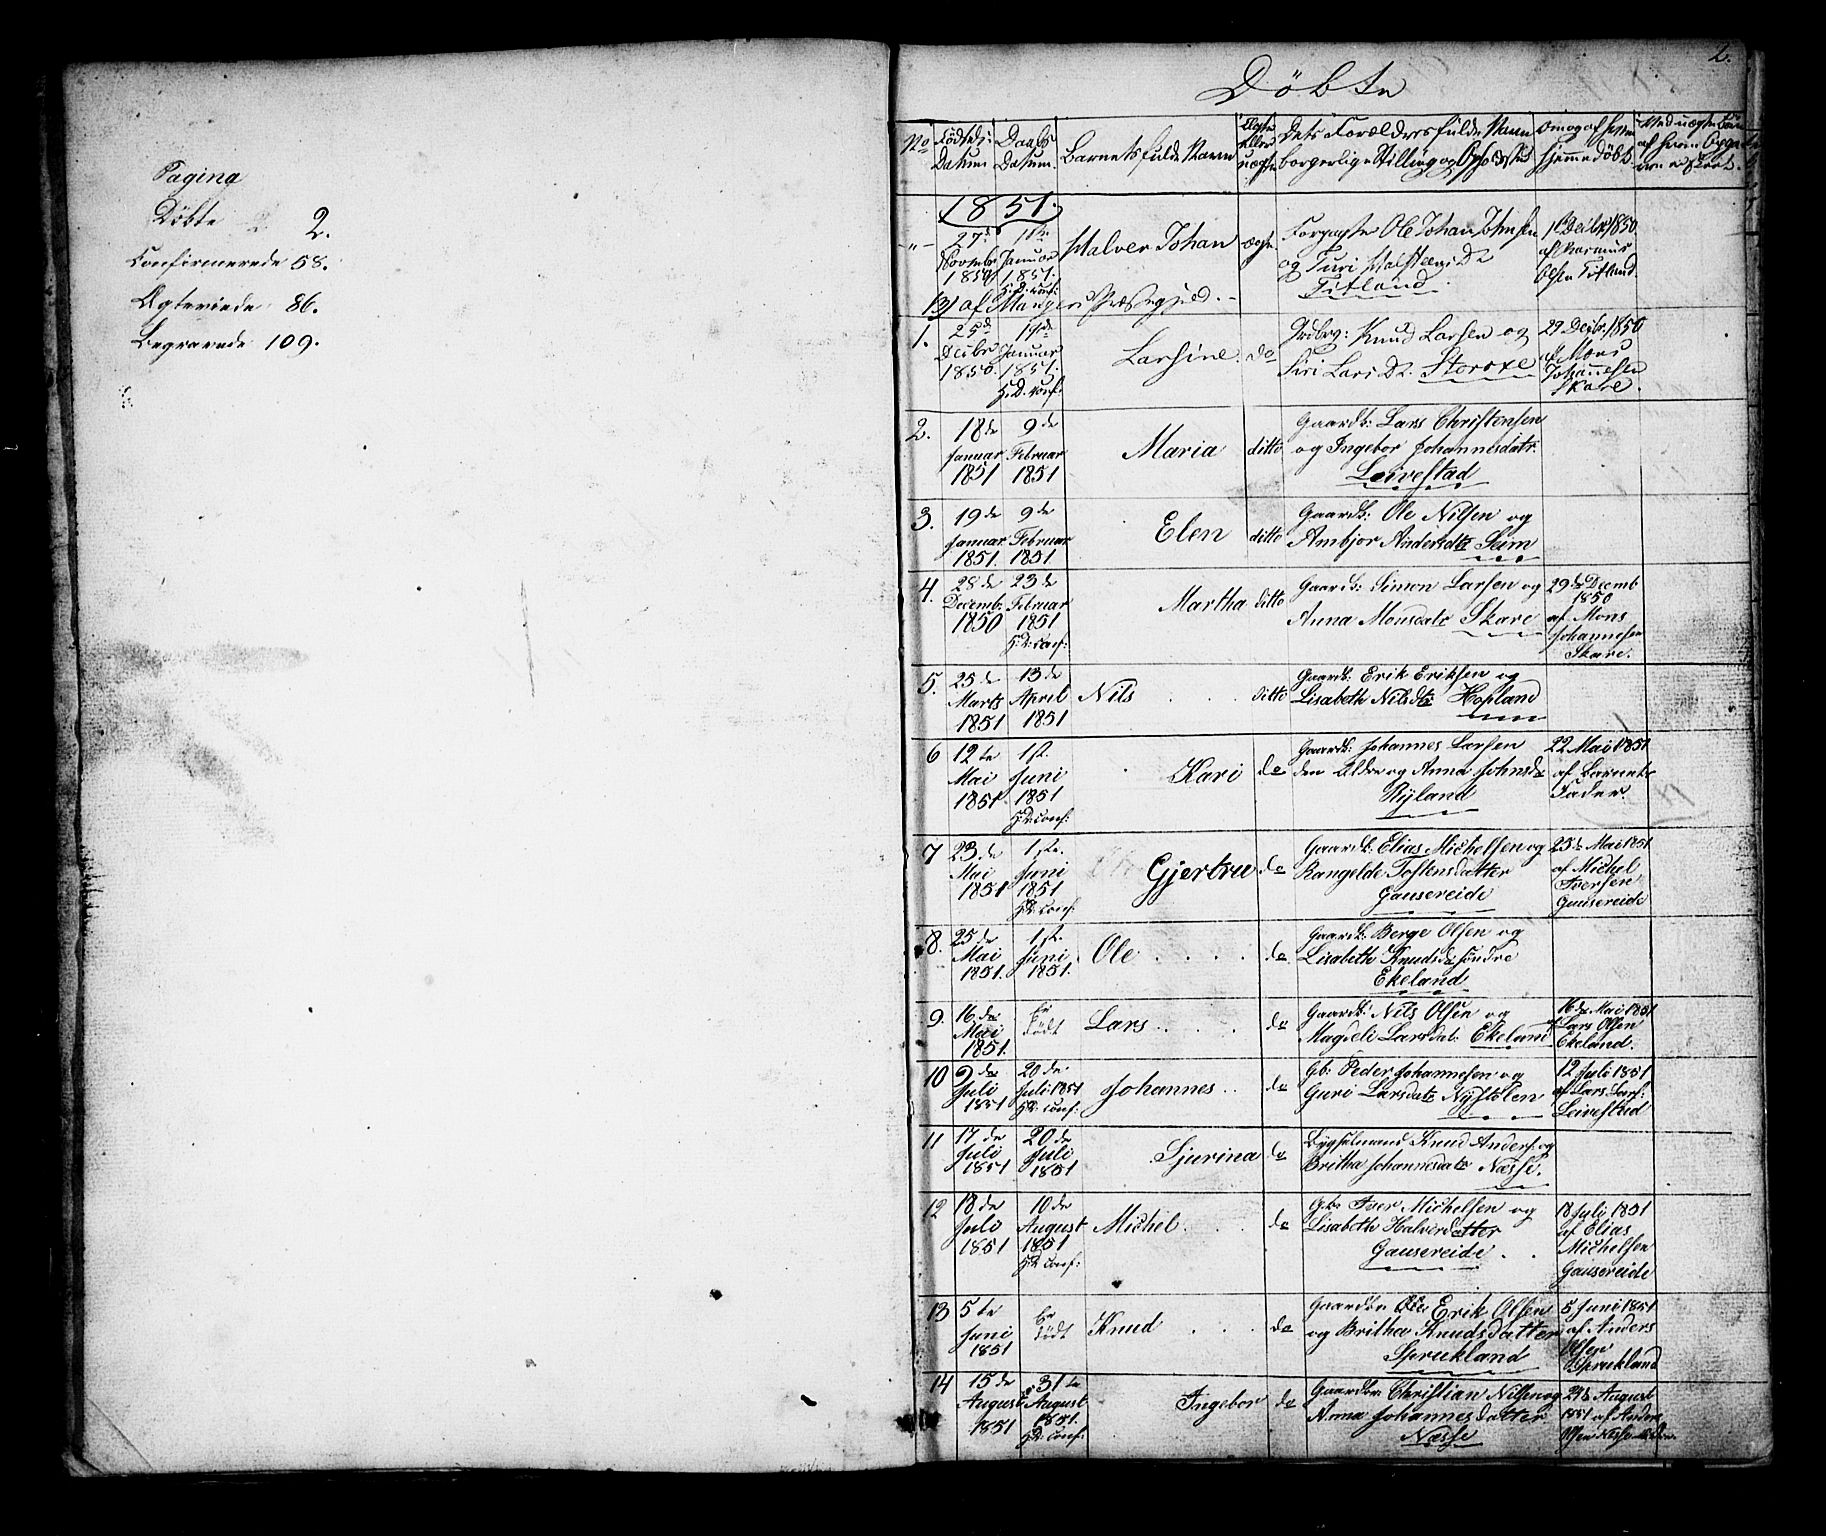 Pagina
Döbte 2.
Confirmerede 58.
Ægteviede 86.
Begravede 109.
2.
Döbte
No
Födsels: Datum
Daabs Datum.
Barnets fulde Navn
Ægte eller uægte
Dets Forældres fulde Navn borgerlige Stilling og Opholdssted
om og af hvem hjemmedöbt
1851.
"
27de Novembr 1850
Januar 1851. H: D. conf:
Halver Johan
ægte
Forpagter Ole Johan Johnsen og Turi Halsteens Dr Titland.
Decbr 1850 af Rasmus Olsen Titland
af Manger Præstegjeld.
1.
25de Decbr 1850.
19de Januar 1851. H: D. conf:
Larsine.
do
Grdbrg: Knud Larsen og Siri Lars Dr.
29 Decbr. 1850 af Mons Johannesen Skare.
2.
18de Januar 1851
9de Februar 1851
Maria
ditto
Gaardb: Lars Christensen og Ingebor Johannesdatr. Leivestad
3.
19de Januar 1851.
9de Februar 1851
Elen
ditto
Gaardb: Ole Nilsen og Ambjor Andersdtr Seim
4.
28de Decemb. 1850
23de Februar 1851 H: D: conf:
Martha
ditto
Gaardb: Simon Larsen og Anna Monsdatr Skare
29de Decemb 1850 af Mons Johannesen Skare.
5.
25de Marts 1851
13de April 1851
Nils
ditto
Gaardb: Erik Eriksen og Lisabeth Nilsdtr Hopland
6
12te Mai 1851
1st. Juni 1851 H: D: conf:
Kari
do
Gaardb: Johannes Larsen den Ældre og Anna Johnsdr Ryland
22 Mai 1851 af Barnets Fader.
7
23de Mai 1851
1ste. Juni 1851 H: D: conf:
Gjertru
do
Gaardb: Elias Michelsen og Rangelde Tostensdatter Gausereide
25de Mai 1851 af Michel Iversen Gausereide
8.
25de Mai 1851.
1st. Juni 1851.
Ole
do
Gaardb: Berge Olsen og Lisabeth Knudsdr söndre Ekeland
9.
16de Mai 1851.
Er Död
Lars
do
Gaardb: Nils Olsen og Magdeli Larsdat: Ekeland
16de Mai 1851 af Lars Olsen Ekeland.
10
9de Juli 1851
20de Juli 1851 H: D: conf:
Johannes
do
Gb: Peder Johannesen og Guri Larsdatr Nystölen
12 Juli 1851 af Lars Lars: Leivestad
11
17de Juli 1851
20de Juli 1851
Sjurina
do
Bygselmand Knud Anders: og Britha Johannesdatr Næsse.
12
18de Juli 1851
10de August 1851 H: D: conf:
Michel.
do
Gb: Iver Michelsen og Lisabeth Halverdatter Gausereide
18 Juli 1851 af Elias Michelsen Gausereide
13
5te Juni 1851
Er Död
Knud
do
Gaardbr Erik Olsen og Britha Knudsdatter Sprukland
5 Juni 1851 af Anders Olsen Sprukland
14
15de August 1851
31te August 1851. H: D: conf:
Ingebor
do
Gaardbr: Christian Nilsen og Anna Johannesdatter Næsse
August 1851 af Anders Olsen